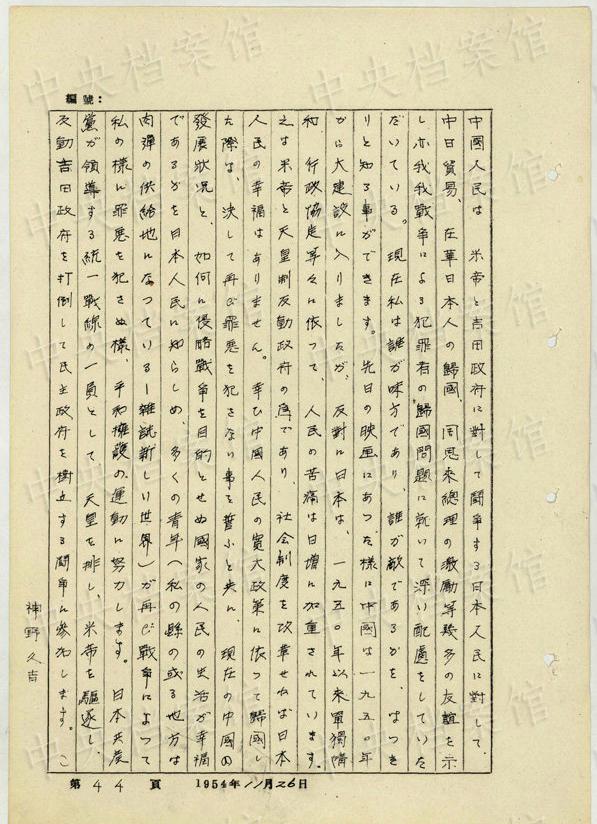 編號：
中國人民は 米帝と吉田政府に對して鬪争する日本人民に對して、
中日貿易、在華日本人の歸國、周恩來總理の激励等幾多の友誼を示
し亦我我戰争による犯罪者の歸國問題に就いて深い配慮をしていた
だいている。 現在私は誰が味方であり、誰が敵であるかを、はつき
りと知る事ができます。先日の映画にあつた様に中國は一九五〇年
から大建設に入りましたが、反對に日本は、一九五〇年以来單獨講
和 行政協定等々に依つて、人民の苦痛は日増に加重されています。
之は米帝と天皇制反動政府の爲であり、社会制度を改革せねば日本
人民の幸福はありません。幸ひ中國人民の寛大政策に依つて歸國し
た際は、決して再び罪悪を犯さない事を誓ふと共に、現在の中國の
發展狀況と、如何に侵略戰争を目的とせぬ國家の人民の生活が幸福
であるかを日本人民に知らしめ、多くの青年（私の縣の或る地方は
肉彈の供給地になつている－雜誌新しい世界）が再び戰争によつて
私の様に罪悪を犯さぬ様、平和擁護の運動に努力します。日本共産
黨が領導する統一戰線の一員として、天皇を排し、米帝を驅逐し、
反動吉田政府を打倒して民主政府を樹立する鬪争に参加します。
神野久吉
第44頁 1954年11月26日
中央档案馆